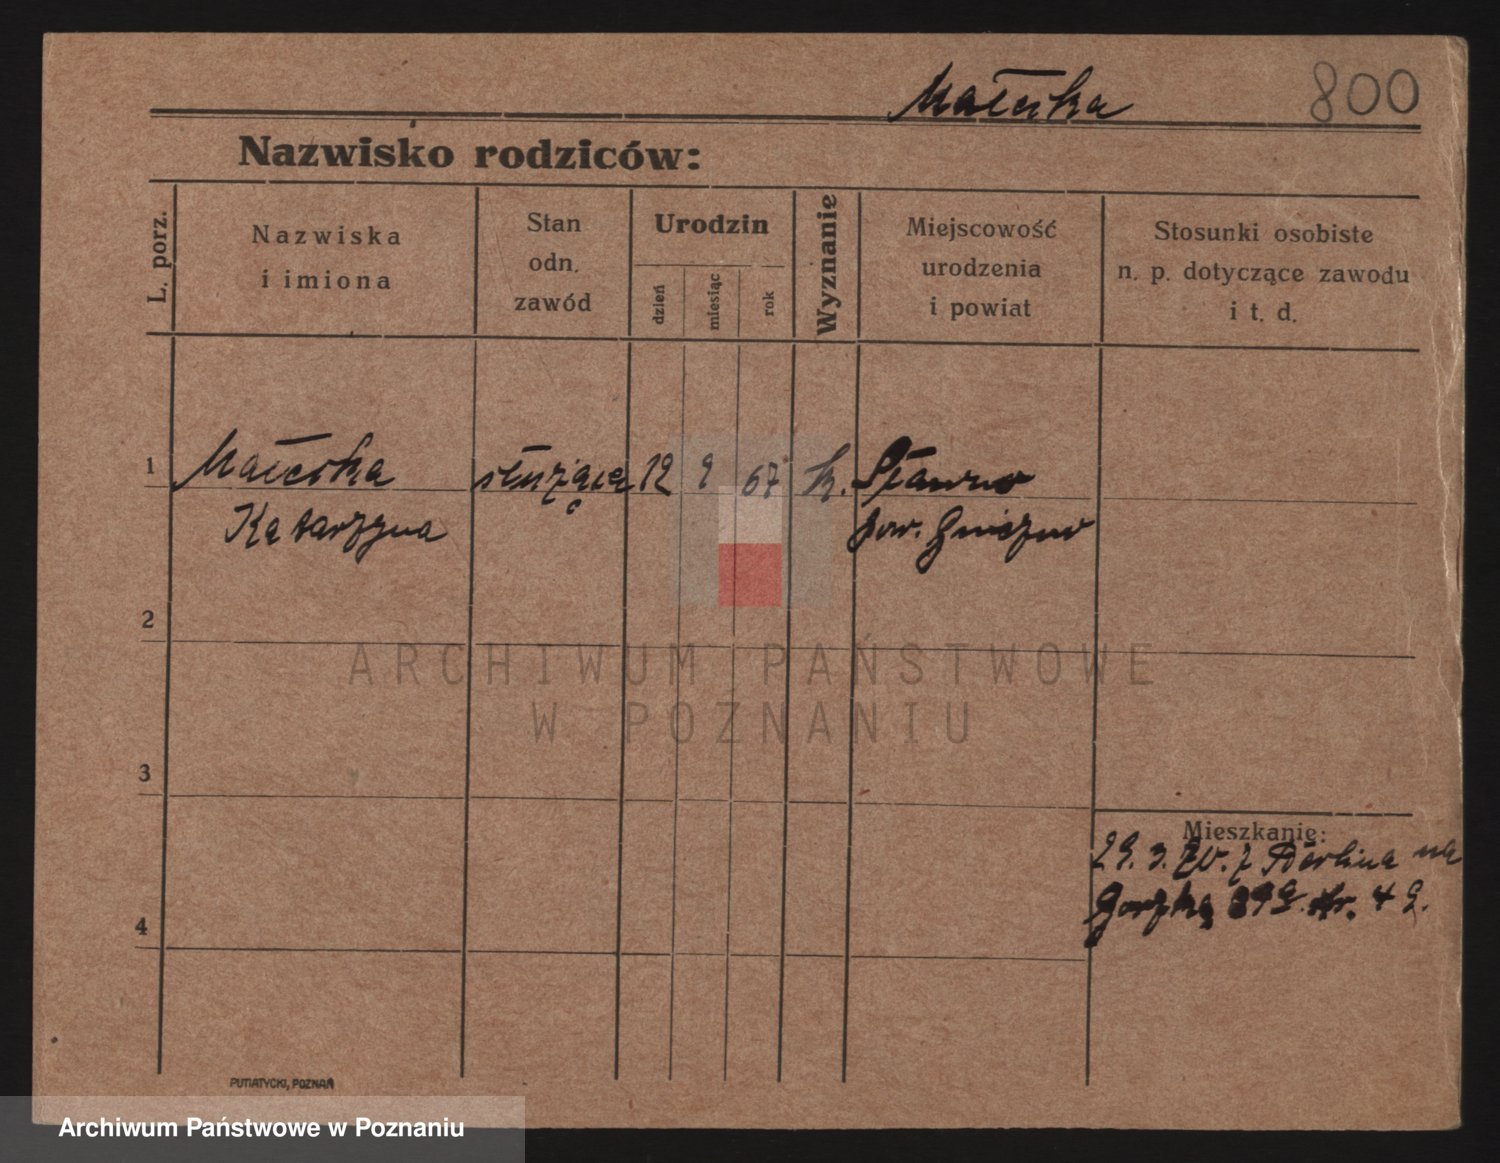 Małecka
800
Nazwisko rodziców:
L. porz.
Nazwiska
i imiona
Stan
odn.
zawód
Urodzin
dzień
miesiąc
rok
Wyznanie
Miejscowość
urodzenia
i powiat
Stosunki osobiste
n. p. dotyczące zawodu
i t. d.
1
Małecka
Katarzyna
służąca
12
9
67
k.
Sławno
pow. Gniezno
2
3
4
Mieszkanie:
29. 3. 20. z Berlina na
Górską
PUTIATYCKI, POZNAŃ
ARCHIWUM PAŃSTWOWE
W POZNANIU
Archiwum Państwowe w Poznaniu